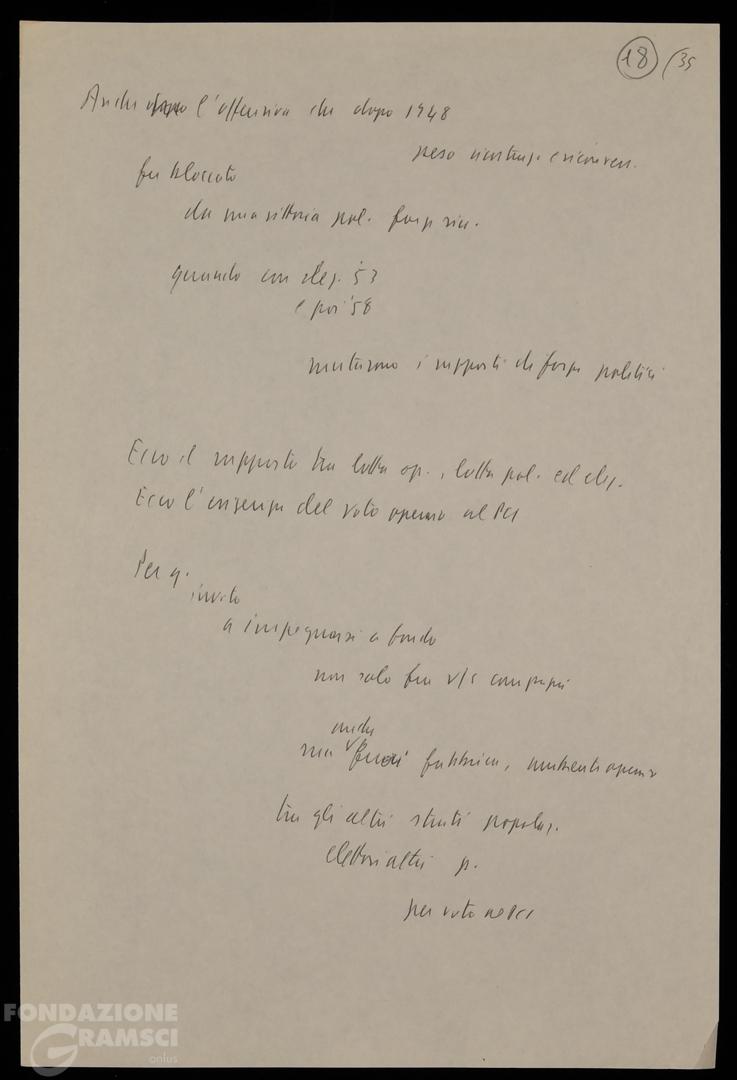 18 /35
Anche l'offensiva che dopo 1948
peso
fu bloccata
da una vittoria pol.
quando con elez. '53
e poi '58
mutarono i rapporti di forza politici
Ecco il rapporto tra lotta op., lotta pol. ed elez.
Ecco l'esigenza del voto operaio al PCI
Per q.
invito
a impegnarsi a fondo
non solo fra v/i compagni
anche
ma fuori fabbrica, operai
tra gli altri strati popolaz.
elettori altri p.
per voto al PCI
FONDAZIONE
GRAMSCI
onlus